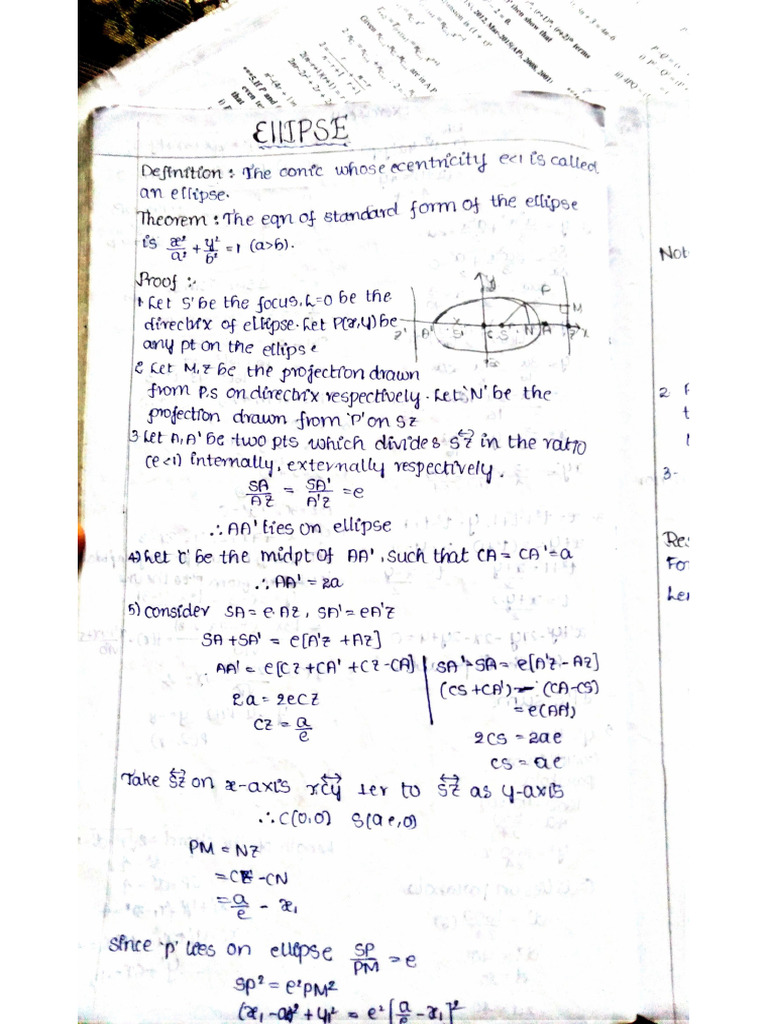 ELLIPSE
Definition : The conic whose eccentricity e<1 is called
an ellipse.
Theorem : The eqn of standard form of the ellipse
is x²/a² + y²/b² = 1 (a>b).
Proof :-
1. Let S' be the focus, L=0 be the
directrix of ellipse. Let P(x,y) be
any pt on the ellipse
2. Let M, Z be the projection drawn
from P,S on directrix respectively. Let 'N' be the
projection drawn from 'P' on SZ
3 Let A, A' be two pts which divides SZ in the ratio
(e<1) internally, externally respectively.
SA/AZ = SA'/A'Z = e
∴ AA' lies on ellipse
4) Let 'C' be the midpt of AA', such that CA = CA' = a
∴ AA' = 2a
5) consider SA = e AZ, SA' = eA'Z
SA + SA' = e[A'Z + AZ]
AA' = e[CZ + CA' + CZ - CA]
2a = 2eCZ
CZ = a/e
SA' - SA = e[A'Z - AZ]
(CS + CA') - (CA - CS)
= e(AA')
2CS = 2ae
CS = ae
Take SZ on x-axis xCy ⊥er to SZ as y-axis
∴ C(0,0) S(ae,0)
PM = NZ
= CZ - CN
= a/e - x₁
Since 'P' lies on ellipse SP/PM = e
SP² = e²PM²
(x₁ - ae)² + y₁² = e²[a/e - x₁]²
Z' A' S' C S N A Z x
y
P
M
Not
2
3-
Res
For
Ler